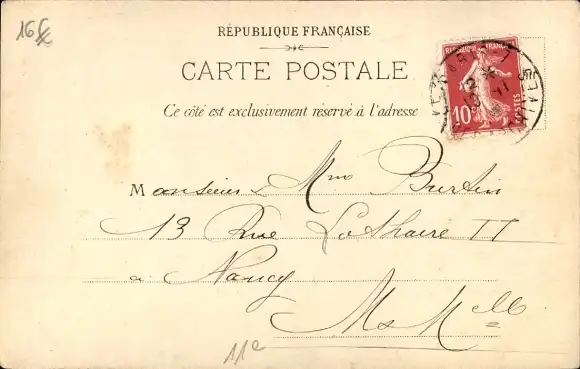 16€
RÉPUBLIQUE FRANÇAISE
CARTE POSTALE
Ce côté est exclusivement réservé à l'adresse
REPUBLIQUE FRANÇAISE
10c
POSTES
Monsieur & Mme Bertin
13 Rue Lothaire II
à Nancy
M & Mlle